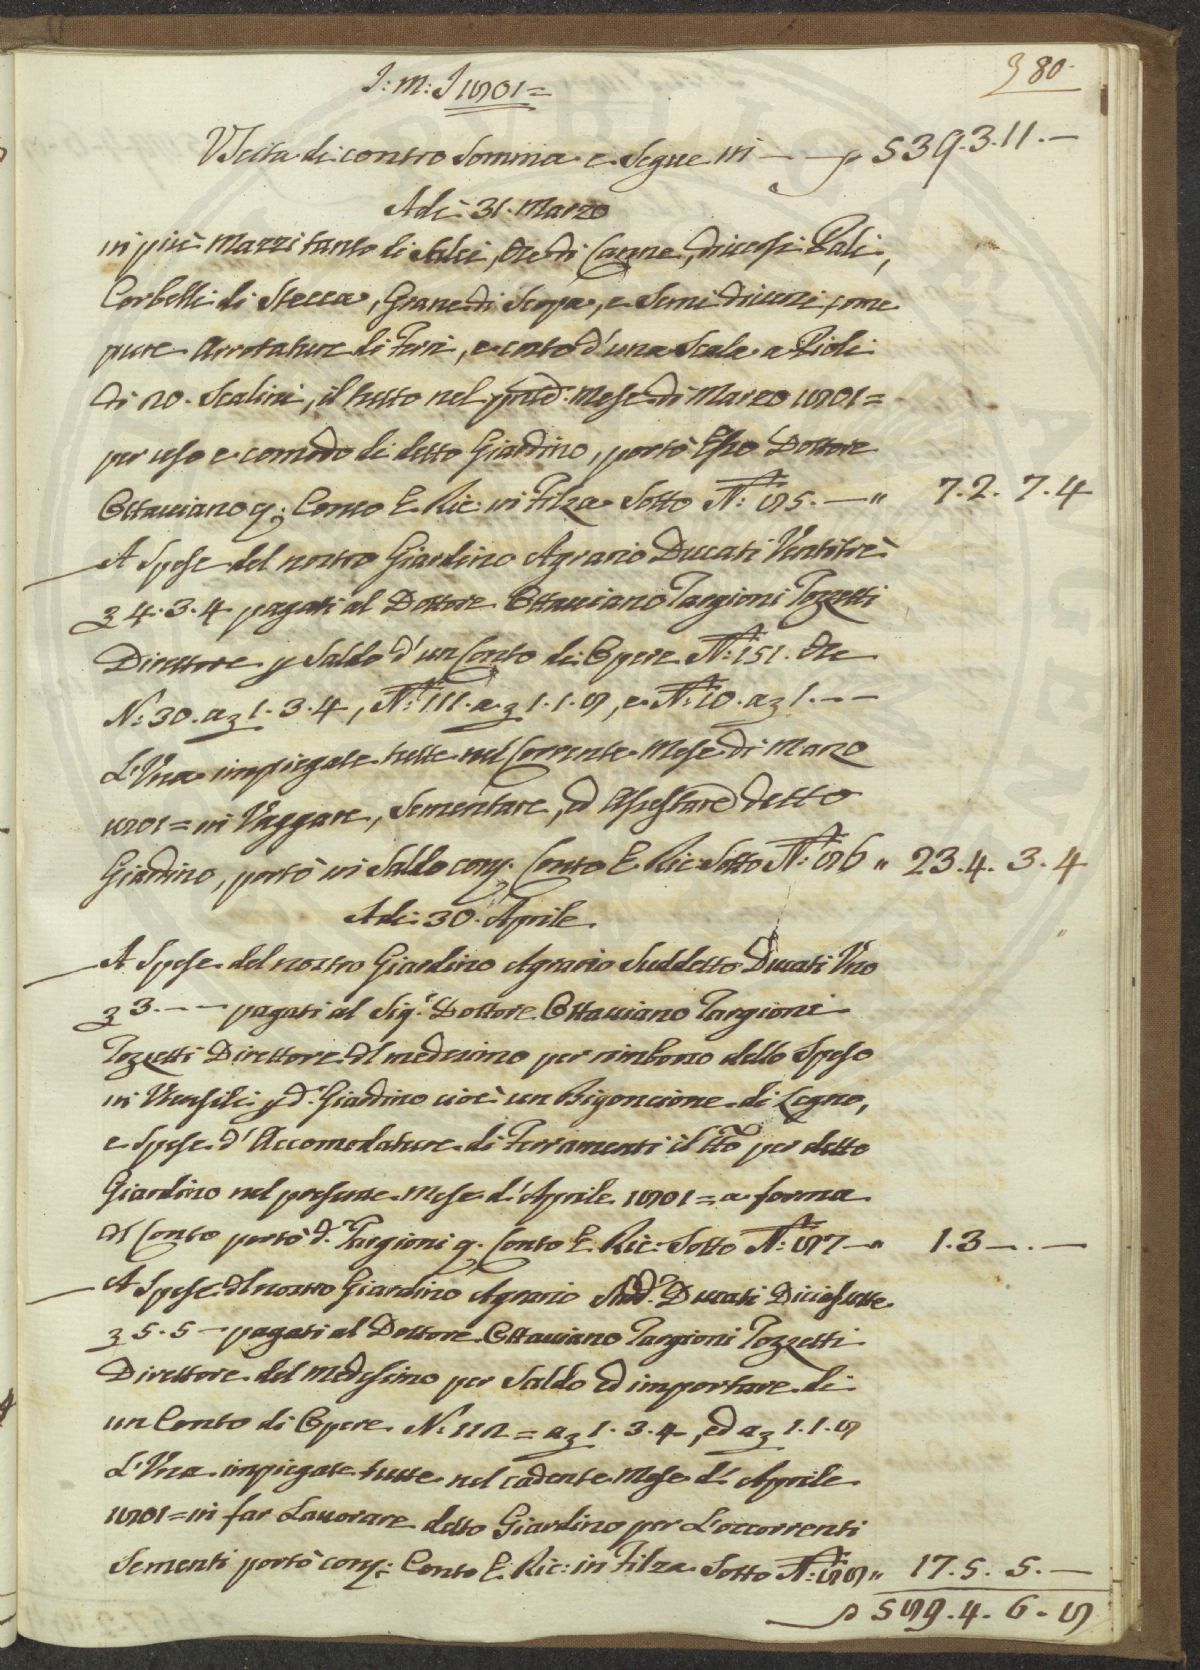 J: M: J 1801=
380.
Uscita di contro Somma e Segue in — — 539.3.11.—
Adi: 31. Marzo
in più Mazzi tanto di Salci, che di Canne, diversi Pali,
Corbelli di Stecca, Grane di Scopa, e Semi diversi, come
pure Arrotature di Ferri, e costo d'una Scala a Pioli
di 20. Scalini, il tutto nel Mese di Marzo 1801=
per uso e comodo di detto Giardino, portò Esso Dottore
Ottaviano q: Conto E. Ric: in Filza Sotto N: 85.— " 7.2.7.4
A Spese del nostro Giardino Agrario Ducati Ventitrè
4.3.4 pagati al Dottore Ottaviano Targioni Tozzetti
Direttore p Saldo d'un Conto di Opere N: 151. Cioè
N: 30. a 1.3.4, N: 111. a 1.1.8, e N: 10. a 1.— —
L'Una impiegate tutte nel Corrente Mese di Marzo
1801= in Vaggare, Sementare, ed Assestare detto
Giardino, portò in Saldo conp. Conto E. Ric: Sotto N: 86 " 23.4.3.4
Adi: 30. Aprile
A Spese del nostro Giardino Agrario Suddetto Ducati Uno
3.— — pagati al Sig.r Dottore Ottaviano Targioni
Tozzetti Direttore del medesimo per rimborso dello Speso
in Utensili p d.o Giardino cioè un Bigoncione di Legno,
e Spese d'Accomodature di Ferramenti il tto per detto
Giardino nel presente Mese d'Aprile 1801= a forma
del Conto portò d.o Targioni q. Conto E. Ric: Sotto N: 87— " 1.3—.—
A Spese del nostro Giardino Agrario Sudd.o Ducati Diciasette
5.5— pagati al Dottore Ottaviano Targioni Tozzetti
Direttore del Medesimo per Saldo ed importare di
un Conto di Opere N: 112= a 1.3.4, ed a 1.1.8
L'Una impiegate tutte nel cadente Mese d'Aprile
1801= in far Lavorare detto Giardino per L'occorrenti
Sementi portò conp: Conto E: Ric: in Filza Sotto N: 88 " 17.5.5.—
589.4.6.8